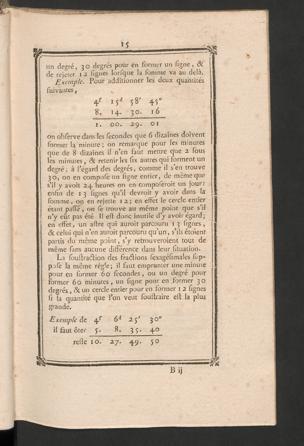 15
un degré, 30 degrés pour en former un signe, &
de rejeter 12 signes lorsque la somme va au delà.
Exemple. Pour additionner les deux quantités
suivantes,
4ſ 15d 58' 45"
8. 14. 30. 16
1. 00. 29. 01
on observe dans les secondes que 6 dizaines doivent
former la minute; on remarque pour les minutes
que de 8 dizaines il n'en faut mettre que 2 sous
les minutes, & retenir les six autres qui forment un
degré; à l'égard des degrés, comme il s'en trouve
30, on en compose un signe entier, de même que
s'il y avoit 24 heures on en composeroit un jour:
enfin de 13 signes qu'il devroit y avoir dans la
somme, on en rejette 12; en effet le cercle entier
étant passé, on se trouve au même point que s'il
n'y eût pas été. Il est donc inutile d'y avoir égard;
en effet, un astre qui auroit parcouru 13 signes,
& celui qui n'en auroit parcouru qu'un, s'ils étoient
partis du même point, s'y retrouveroient tous de
même sans aucune différence dans leur situation.
La soustraction des fractions sexagésimales sup-
pose la même règle; il faut emprunter une minute
pour en former 60 secondes, ou un degré pour
former 60 minutes, un signe pour en former 30
degrés, & un cercle entier pour en former 12 signes
si la quantité que l'on veut soustraire est la plus
grande.
Exemple de 4ſ 6d 25' 30"
il faut ôter 5. 8. 35. 40
reste 10. 27. 49. 50
B ij